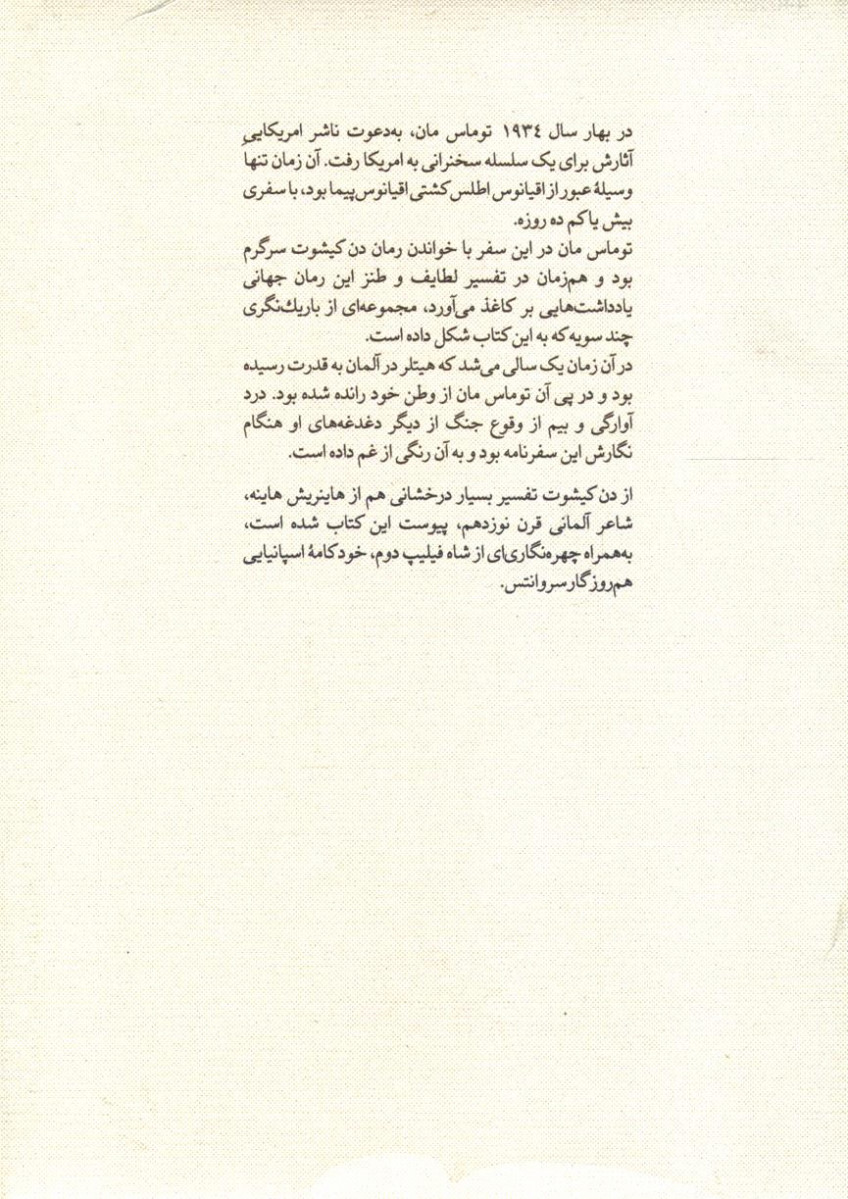 در بهار سال ۱۹۳٤ توماس مان، به‌دعوت ناشر امریکاییِ
آثارش برای یک سلسله سخنرانی به امریکا رفت. آن زمان تنها
وسیلهٔ عبور از اقیانوس اطلس کشتی اقیانوس‌پیما بود، با سفری
بیش یا کم ده روزه.
توماس مان در این سفر با خواندن رمان دن کیشوت سرگرم
بود و هم‌زمان در تفسیر لطایف و طنز این رمان جهانی
یادداشت‌هایی بر کاغذ می‌آورد، مجموعه‌ای از باریک‌نگری
چند سویه که به این کتاب شکل داده است.
در آن زمان یک سالی می‌شد که هیتلر در آلمان به قدرت رسیده
بود و در پی آن توماس مان از وطن خود رانده شده بود. درد
آوارگی و بیم از وقوع جنگ از دیگر دغدغه‌های او هنگام
نگارش این سفرنامه بود و به آن رنگی از غم داده است.
از دن کیشوت تفسیر بسیار درخشانی هم از هاینریش هاینه،
شاعر آلمانی قرن نوزدهم، پیوست این کتاب شده است،
به‌همراه چهره‌نگاری‌ای از شاه فیلیپ دوم، خودکامهٔ اسپانیایی
هم‌روزگار سروانتس.